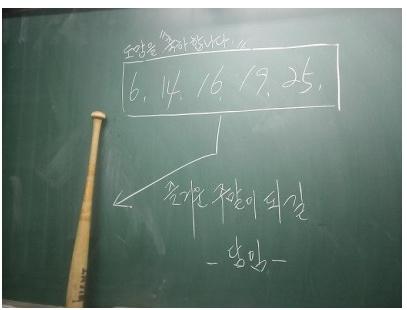 도망을 "축하합니다."
6. 14. 16. 19. 25.
즐거운 주말이 되길
- 담임 -